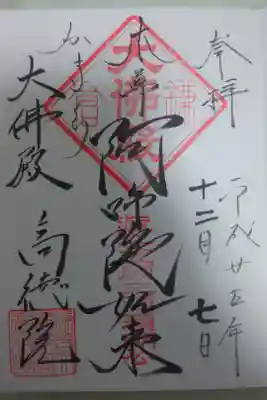 奉拝
平成廿五年
十二月七日
本尊
阿弥陀如来
かまくら
大佛殿
高徳院